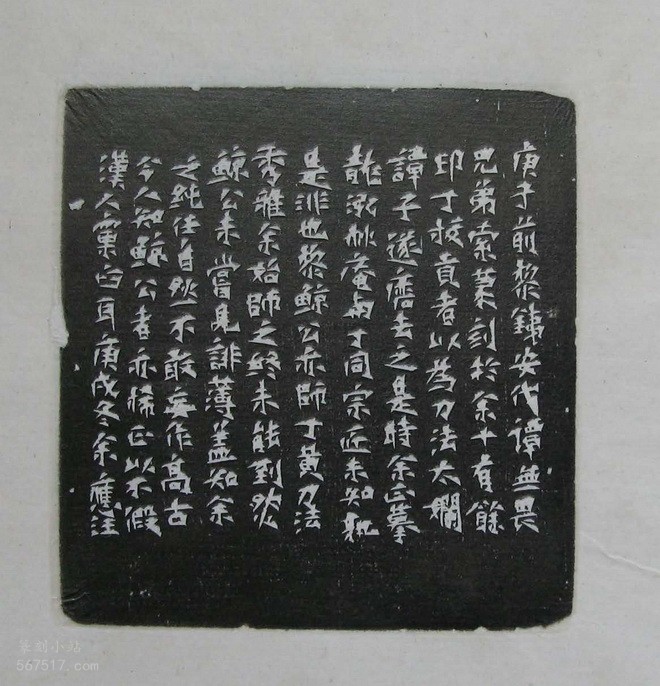 庚子前黎銕安代譚無畏
兄弟索篆刻於余十有餘
印丁拔貢者以為刀法太爛
譚子遂磨去之是時余正摹
龍泓秋庵与丁同宗匠未知孰
是非也黎鯨公亦師丁黃刀法
秀雅余始師之終未能到然
鯨公未嘗見誹薄蓋知余
之純任自然不敢妄作高古
今人知鯨公者亦稀正以不假
漢人窠臼耳庚戌冬余應汪
篆刻小站
567517.com